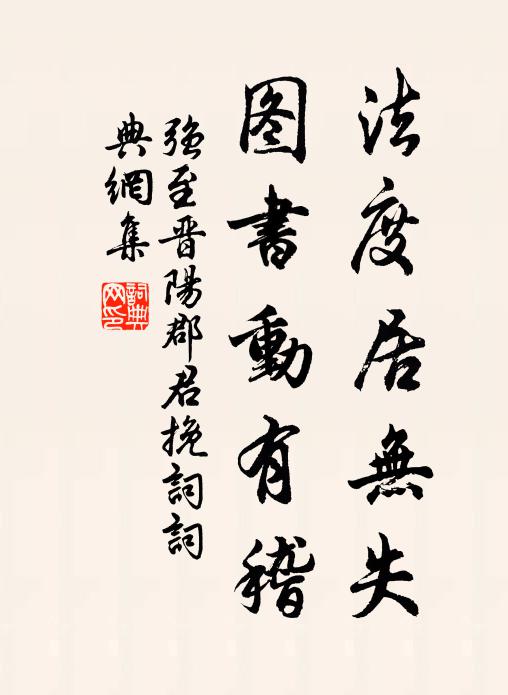 法度居無失
图書動有稽
強至晋陽郡君挽詞詞
典網集
詞典网印